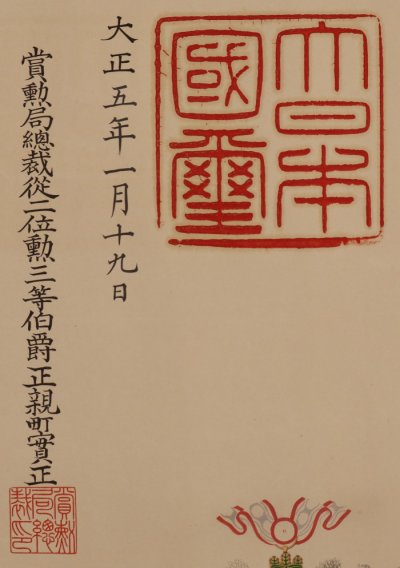 大日本
國璽
大正五年一月十九日
賞勲局總裁從二位勲三等伯爵正親町實正
賞勲
局總
裁印